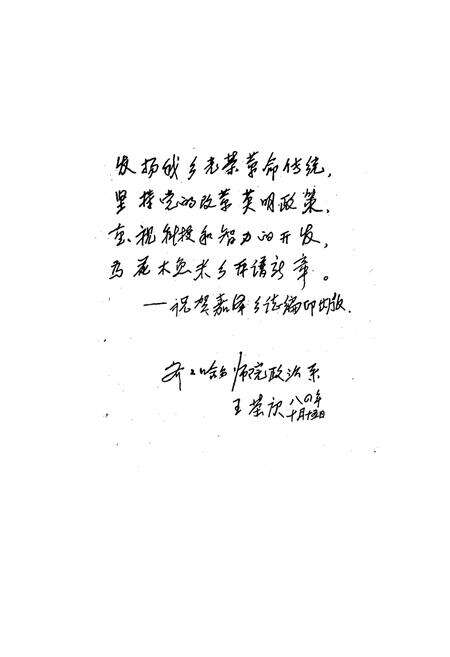 发扬我乡光荣革命传统，
坚持党的改革英明政策，
重视科技和智力的开发，
为花木鱼米乡再谱新章。
——祝贺嘉泽乡志编印出版．
齐齐哈尔师院政治系
王荣庆 八〇年
十月十五日